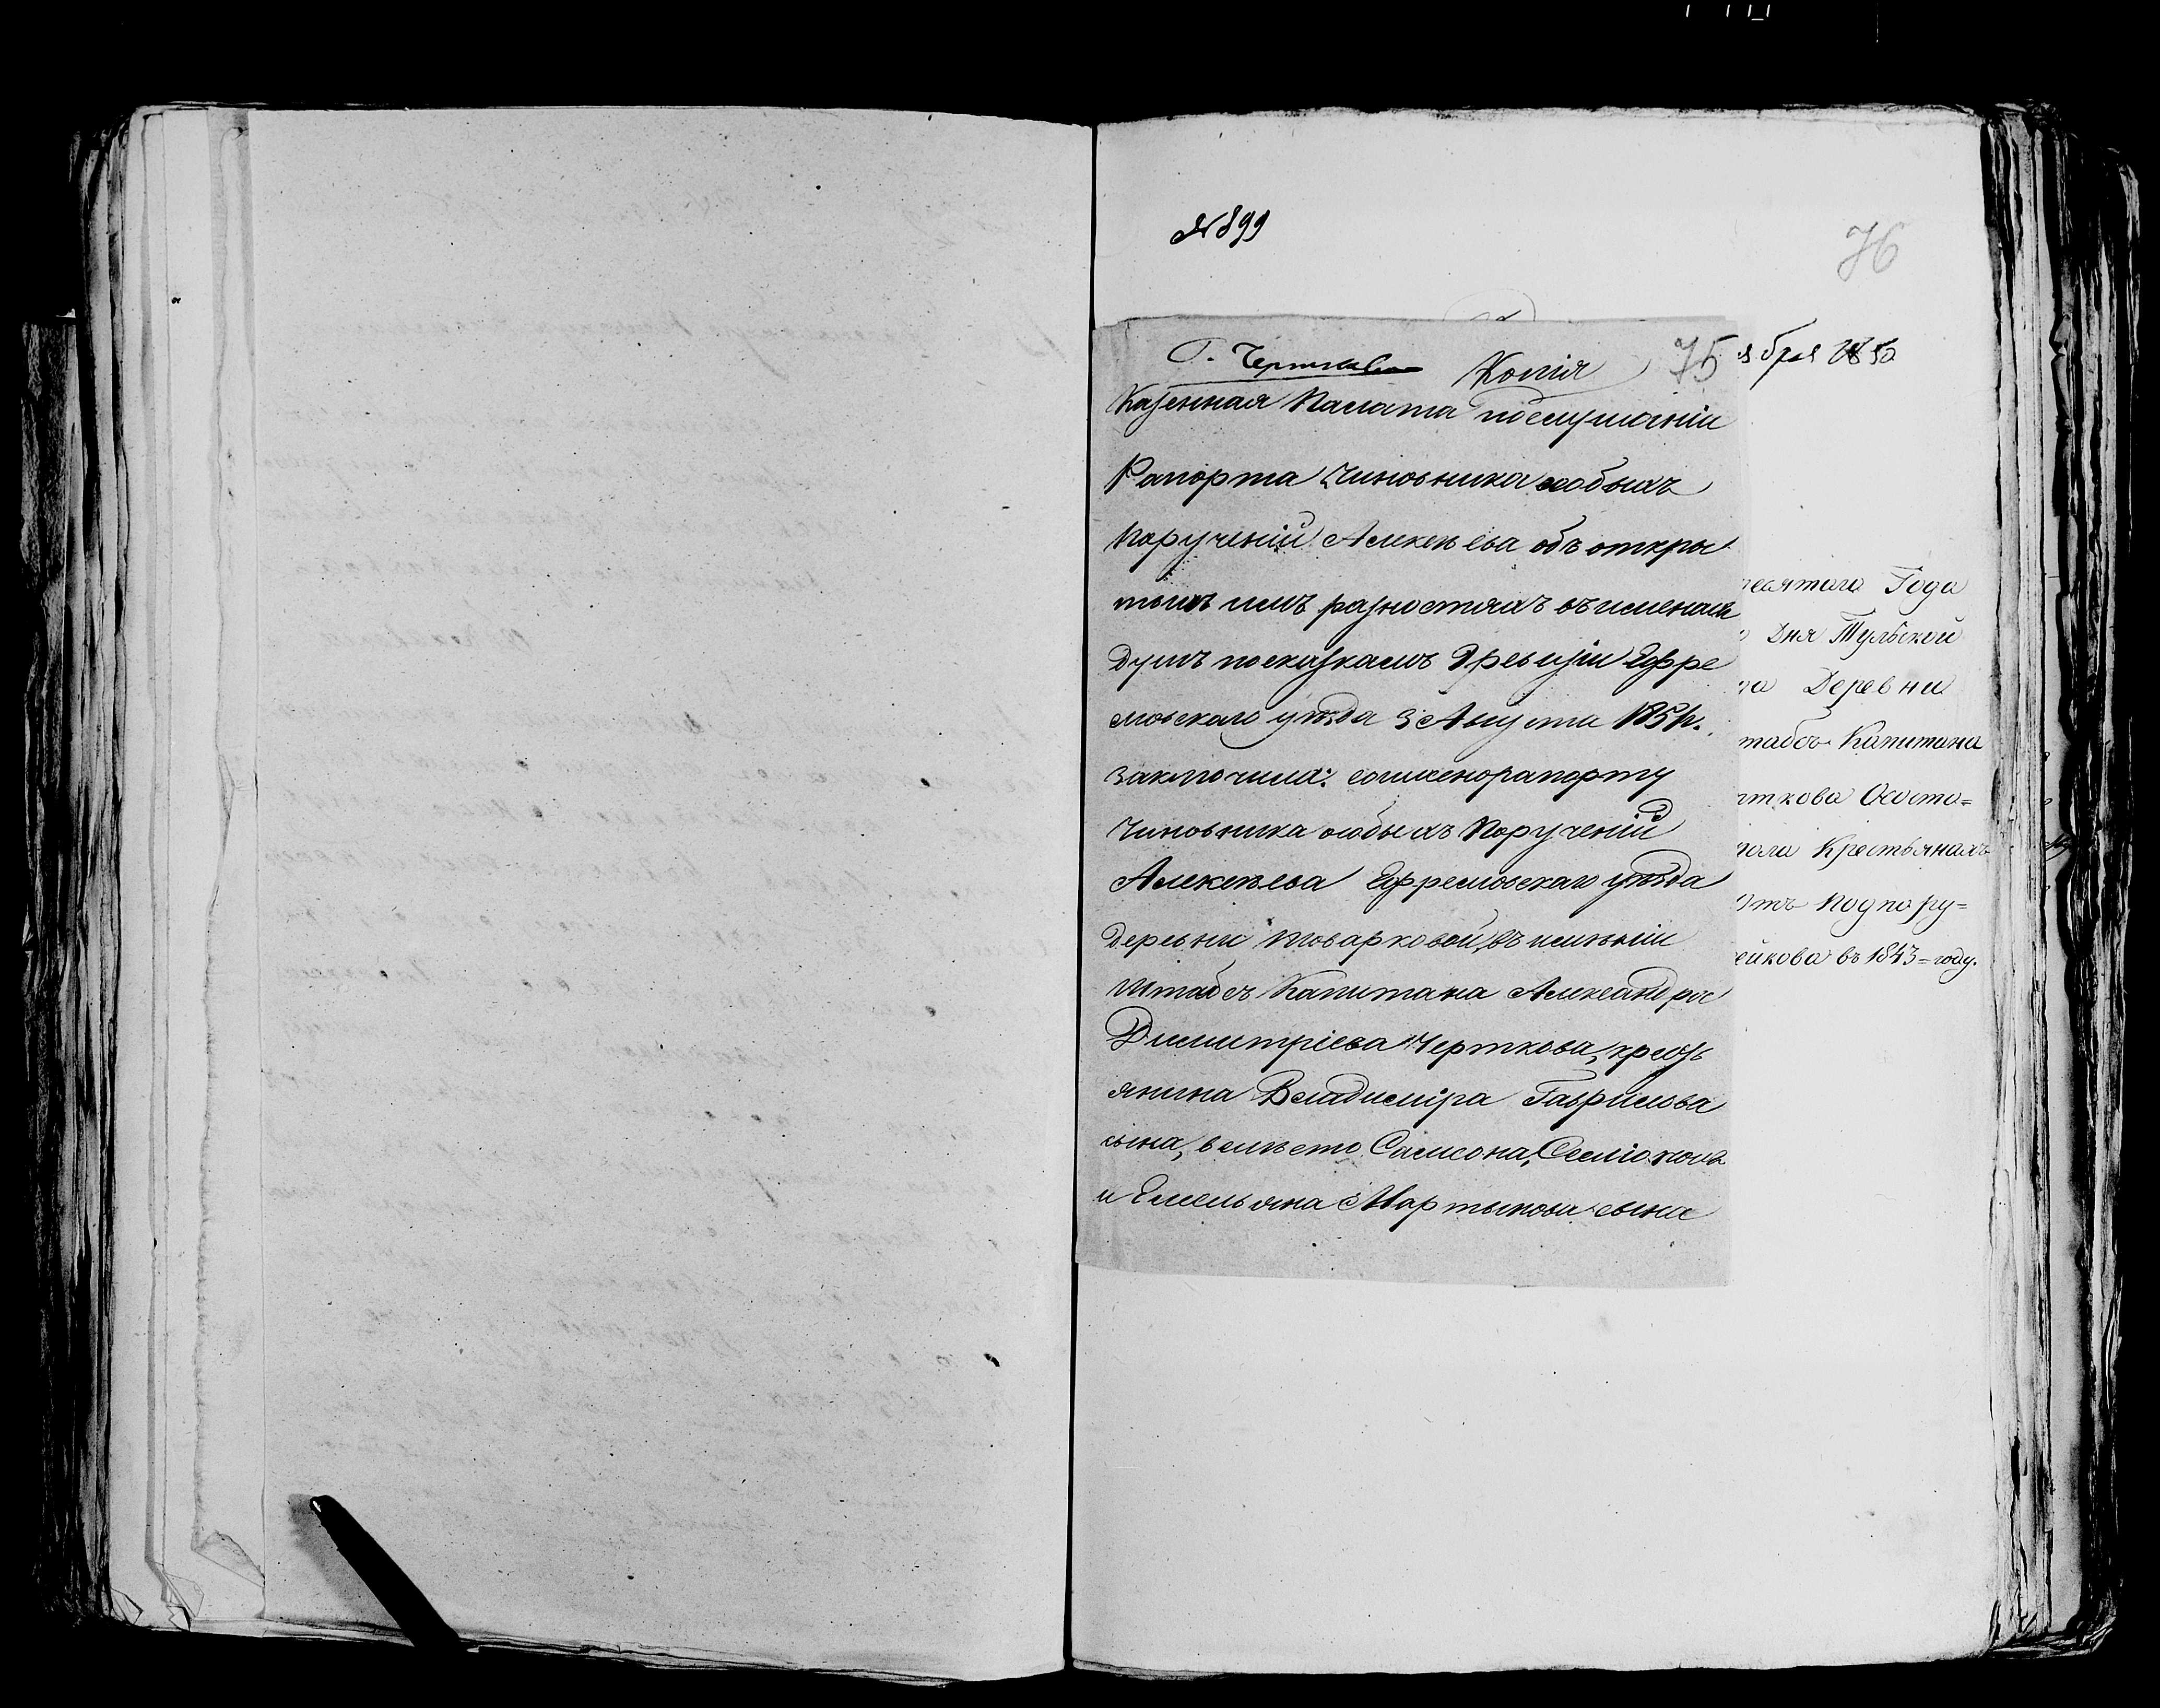 № 899
76
Г. Черткова Копія 75
ября 1850
Казенная Палата послушаніи
Рапорта Чиновника особыхъ
порученій Алексѣева объ откры
тыхъ имъ разностяхъ въ именахъ
душъ посказкамъ 9 ревизіи Ефре
мовскаго уѣзда 3 Августа 1851 г.
заключила: согласно рапорту
Чиновника особыхъ Порученій
Алексѣева Ефремовскаго уѣзда
деревни Товарковой, въ имѣніи
Штабсъ Капитана Александра
Димитріева Черткова, кресть
янина Владиміра Гаврилова
сына, вмѣсто Самсона,
и Емельяна Мартынова сына
десятаго Года
Дня Тульской
да Деревни
табсъ Капитана
рткова Осто=
пола Крестьянахъ
Отъ Подпору=
ейкова въ 1843=году.